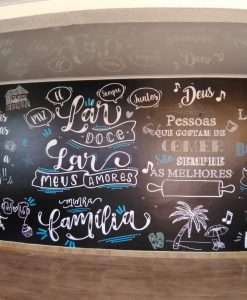 Sempre
Juntos
Lar
DOCE
Lar
MEUS AMORES
minha
família
Deus
Pessoas
QUE GOSTAM DE
COMER
São SEMPRE
AS MELHORES